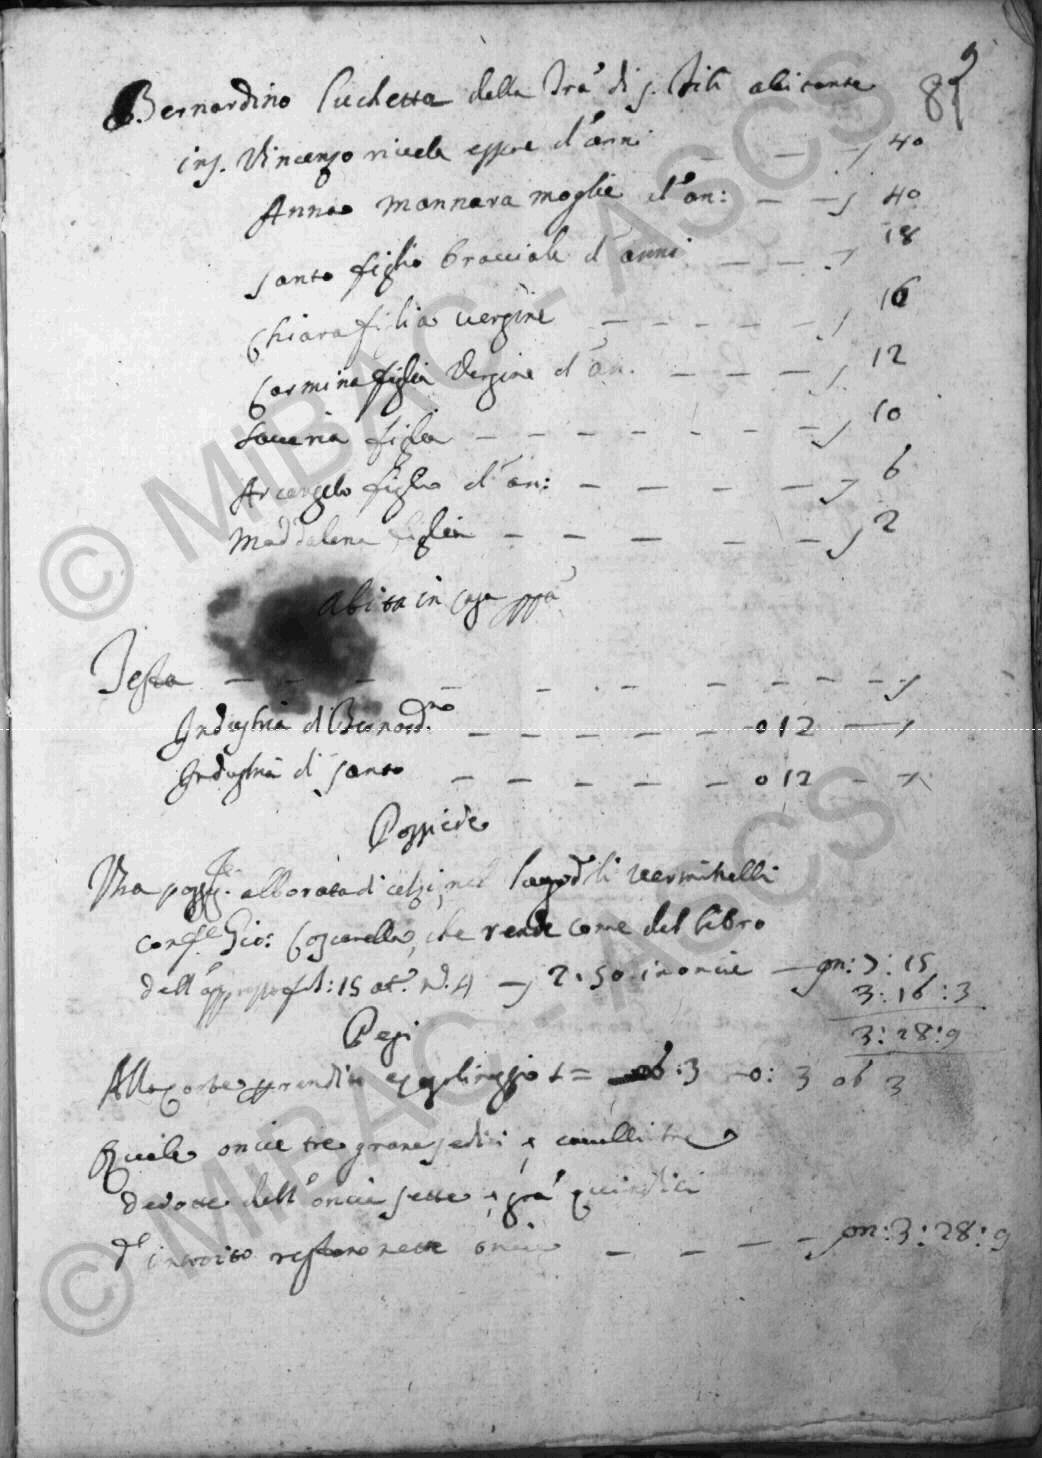 89
Bernardino Luchetta della Trã di S. Fili abitante
in S. Vincenzo rivela essere d'anni — — — 40
Anna Mannara moglie d'an: — — 40
Santo figlio bracciale d'anni — — — 18
Chiara figlia vergine — — — — — 16
Carmina figlia vergine d'an. — — — 12
Saveria figlia — — — — — — — 10
Arcangelo figlio d'an: — — — — — 6
Maddalena figlia — — — — — 2
Abita in casa ppã
Testa — — — — — — — — — —
Industria di Bernard.no — — — — — 012 —
Industria di Santo — — — — — 012 —
Possiede
Una poss.e alborata di celsi nel luogo d.li Vermitelli
conf.e Gio: Coscarella, che rende come dal libro
dell' 15 at. n. 4 — 2.50 in oncie — on: 7: 15
3: 16: 3
3: 28: 9
Pesi
Alla Corte 06:3 — 0: 3 06 3
Quale oncie tre grana sedici e cavalli tre
dedotte dall'oncie sette e grã quindici
d'introito restano nette oncie — — — — on: 3: 28: 9
© MiBAC - ASCS
© MiBAC - ASCS